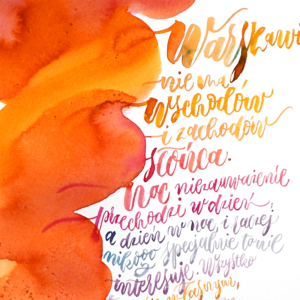 Warszaw
nie ma
wschodów
i zachodów
słońca.
Noc niezauważenie
przechodzi w dzień
a dzień w noc, i raczej
nikogo specjalnie to nie
interesuje. Wszystko
własnym,